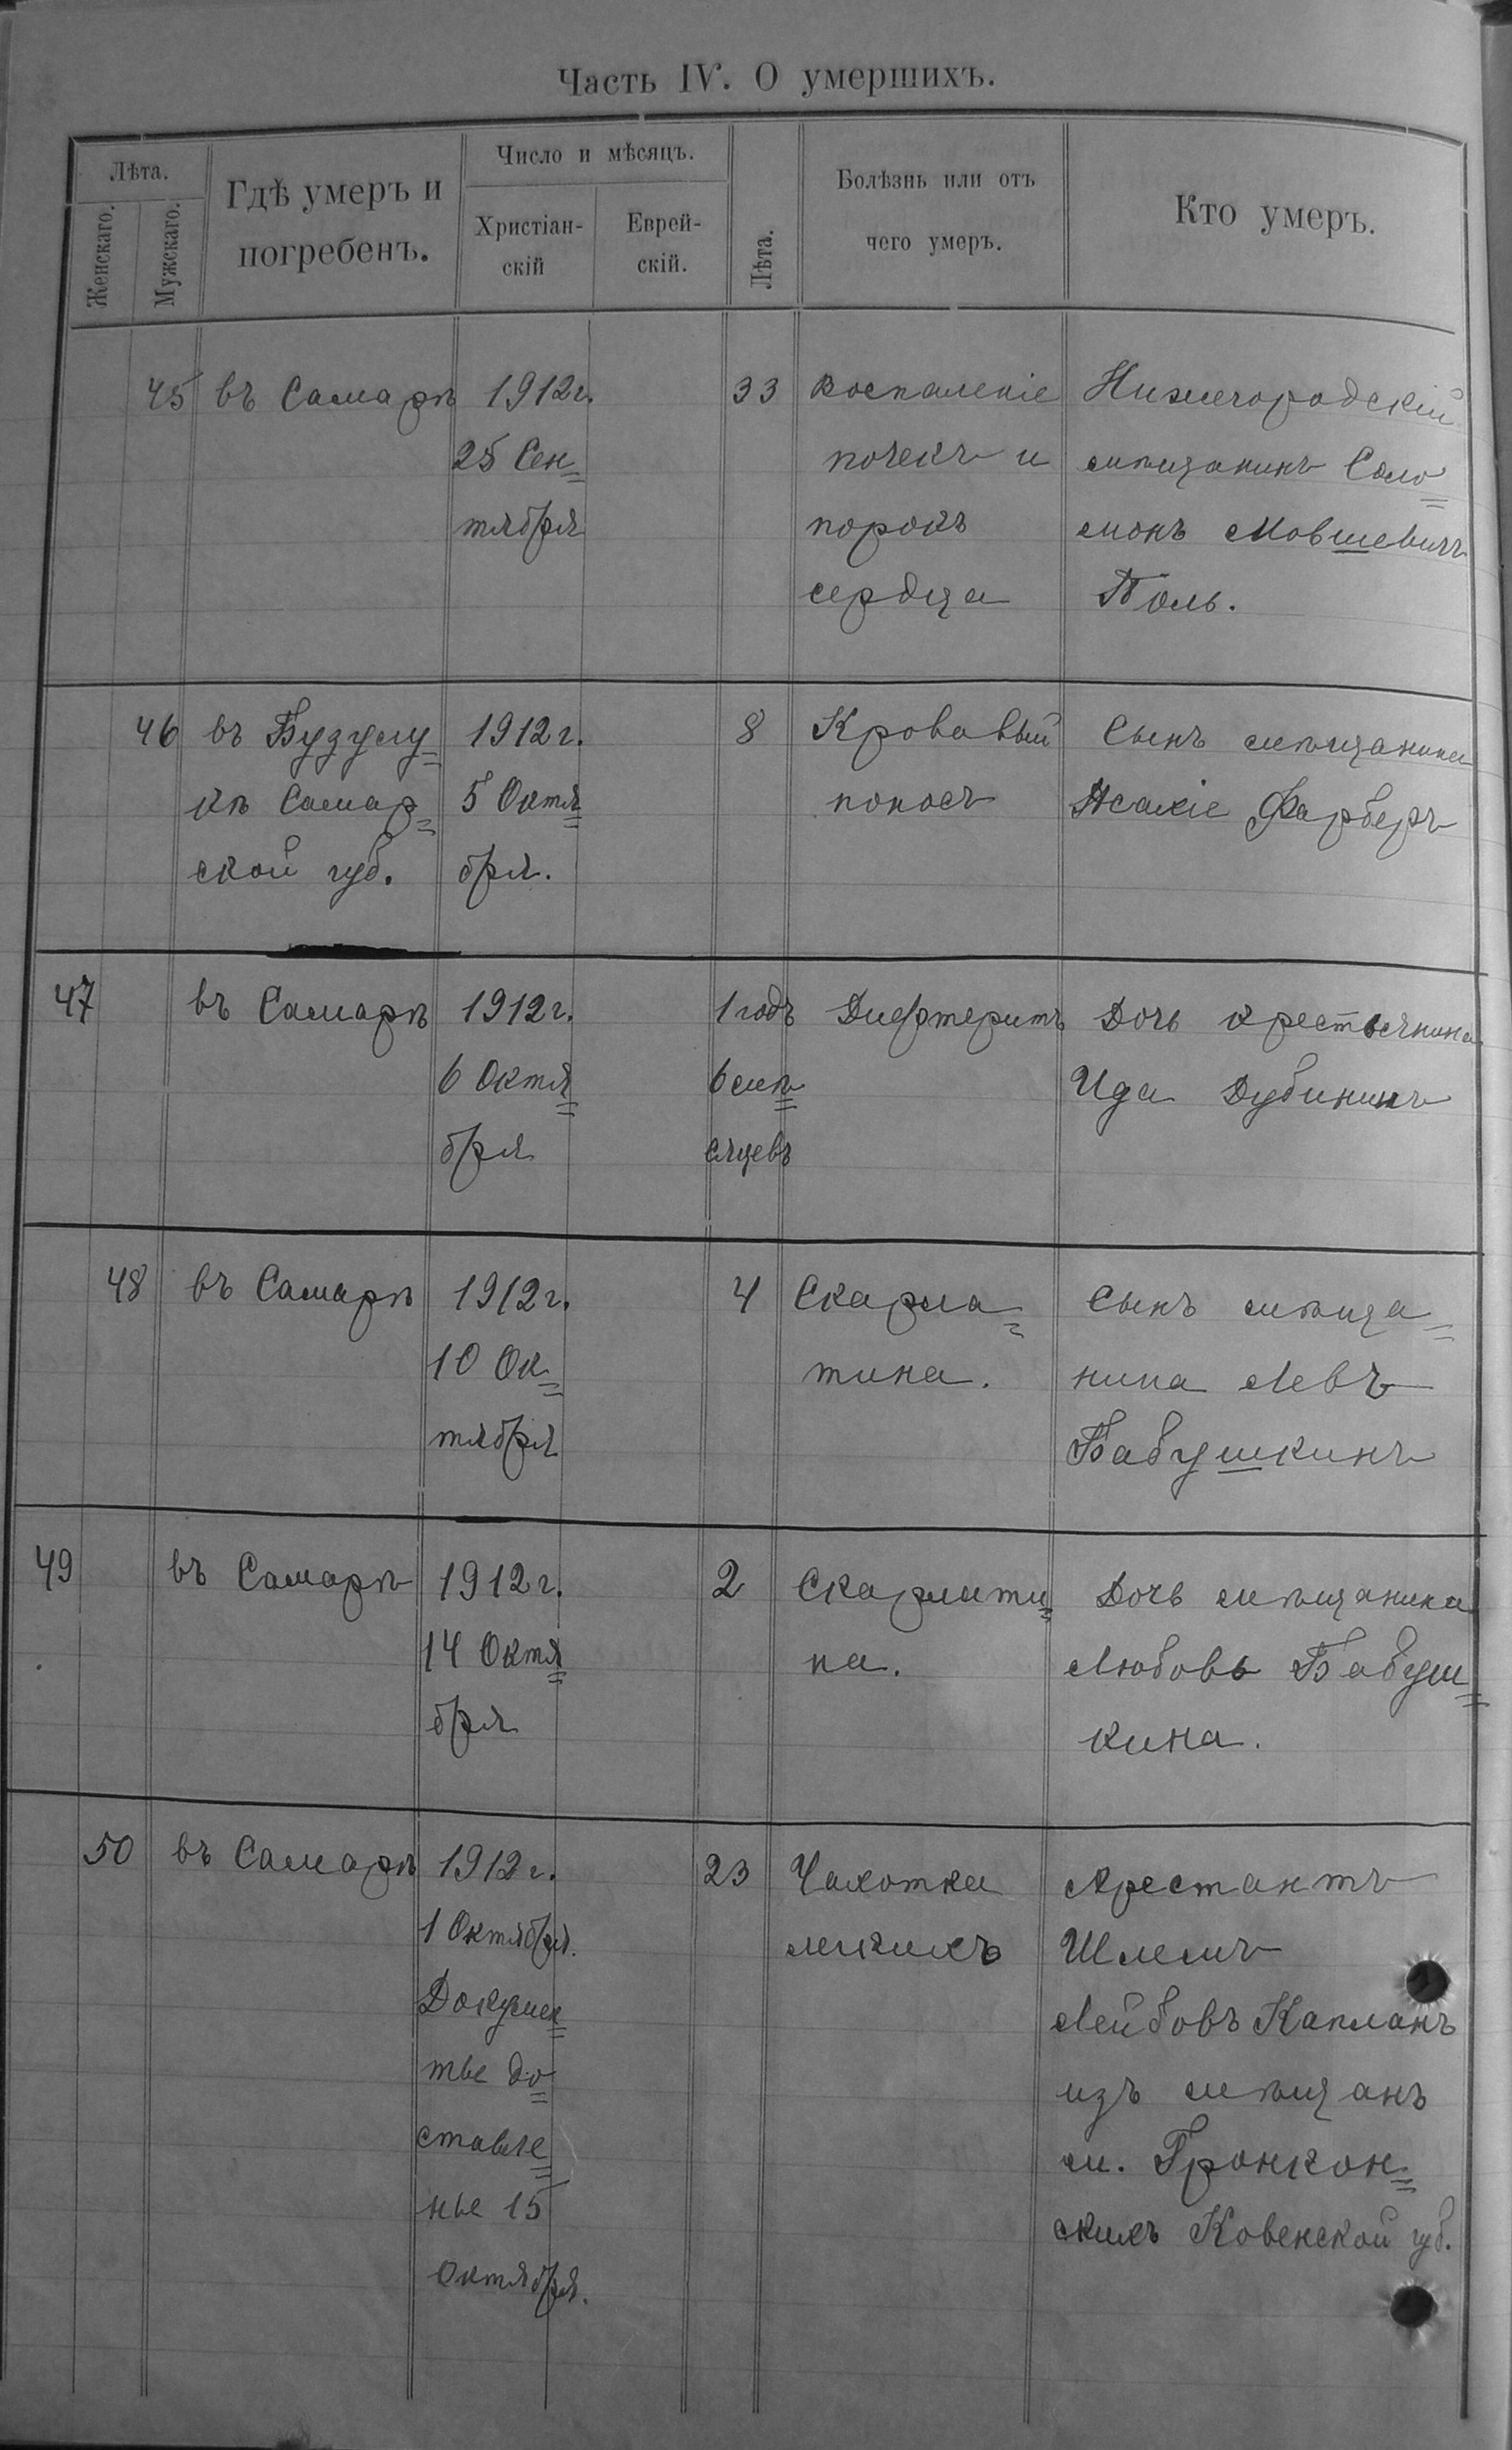 Часть IV. О умершихъ.
Лѣта.
Женскаго.
Мужскаго.
Гдѣ умеръ и
погребенъ.
Число и мѣсяцъ.
Христіан-
скій
Еврей-
скій.
Лѣта.
Болѣзнь или отъ
чего умеръ.
Кто умеръ.
45
въ Самарѣ
1912 г.
25 Сен=
тября
33
Воспаленіе
почекъ и
порокъ
сердца
Нижегородскій
мѣщанинъ Соло=
монъ Мовшевичъ
Поль.
46
въ Бузулу=
кѣ Самар=
ской губ.
1912 г.
5 Октя=
бря.
8
Кровавый
поносъ
Сынъ мѣщанина
Фарберъ
47
въ Самарѣ
1912 г.
6 Октя=
бря
1 годъ
6 мѣ=
сяцевъ
Дифтеритъ
Дочь крестьянина
Ида Дубининъ
48
въ Самарѣ
1912 г.
10 Ок=
тября
4
Скарла=
тина.
Сынъ мѣща=
нина Левъ
Бабушкинъ
49
въ Самарѣ
1912 г.
14 Октя=
бря
2
Скарлати=
на.
Дочь мѣщанина
Любовь Бабуш=
кина.
50
въ Самарѣ
1912 г.
1 Октября.
Докумен=
ты до=
ставле=
ны 15
Октября.
23
Чахотка
легкихъ
Арестантъ
Шлемъ
Лейбовъ Капланъ
изъ мѣщанъ
м. Гронкон=
скихъ Ковенской губ.